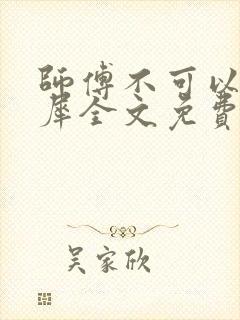 師傅不可以
犀全文免費
吴家欣